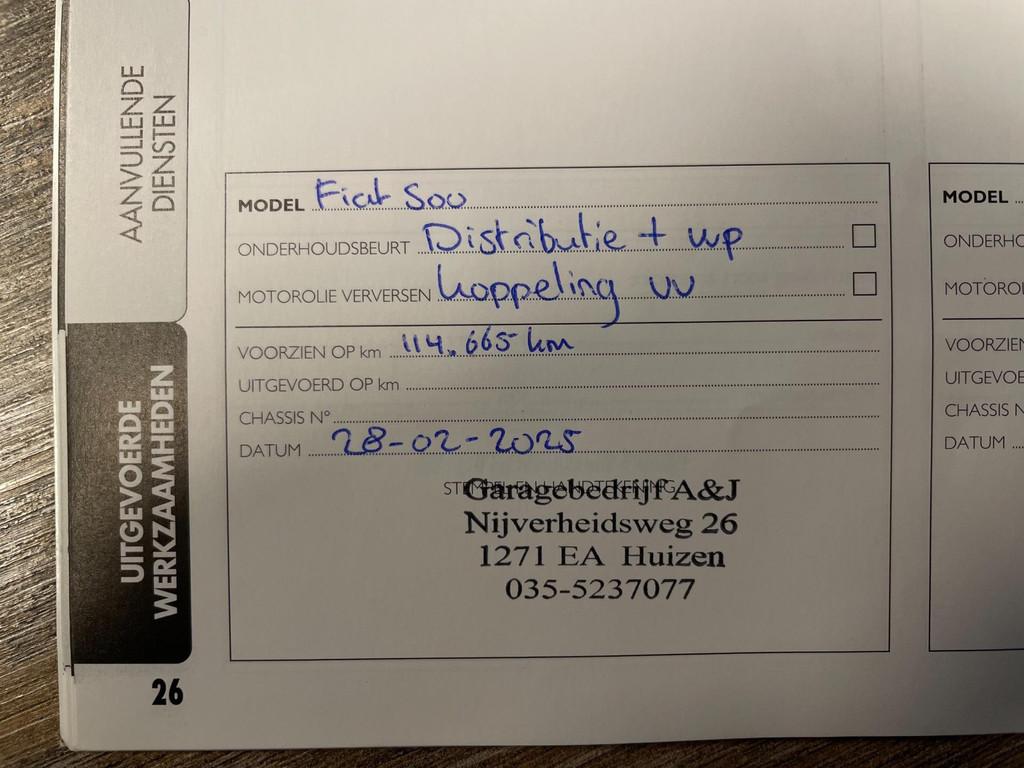 AANVULLENDE
DIENSTEN
UITGEVOERDE
WERKZAAMHEDEN
26
MODEL Fiat 500
ONDERHOUDSBEURT Distributie + wp
MOTOROLIE VERVERSEN koppeling vv
VOORZIEN OP km 114.665 km
UITGEVOERD OP km
CHASSIS N°
DATUM 28-02-2025
STEMPEL EN HANDTEKENING
Garagebedrijf A&J
Nijverheidsweg 26
1271 EA Huizen
035-5237077
MODEL
ONDERHO
MOTOROL
VOORZIEN
UITGEVOE
CHASSIS N
DATUM